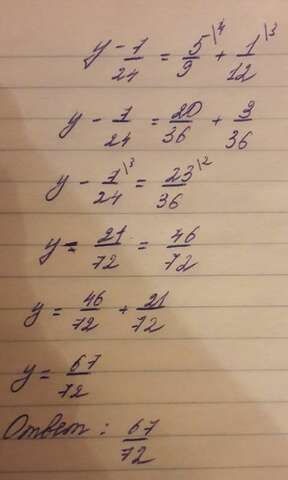 y - 7/24 = 5/9 \4 + 1/12 \3
y - 7/24 = 20/36 + 3/36
y - 7/24 \3 = 23/36 \2
y - 21/72 = 46/72
y = 46/72 + 21/72
y = 67/72
Ответ: 67/72